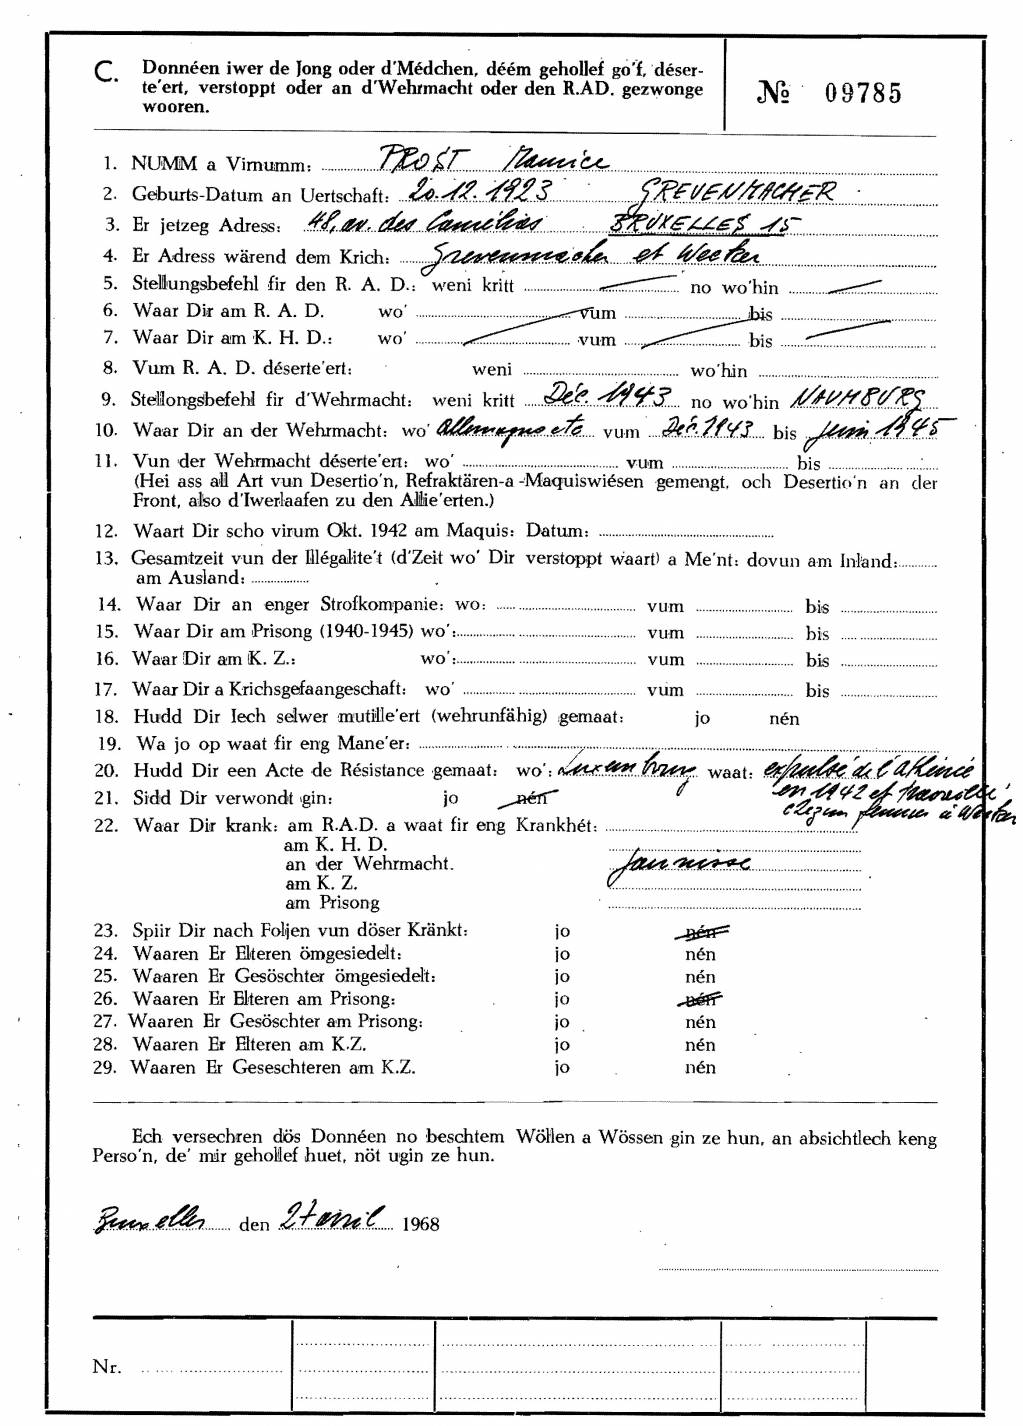 C. Donnéen iwer de Jong oder d'Médchen, déém gehollef go'f, déser-
te'ert, verstoppt oder an d'Wehrmacht oder den R.AD. gezwonge
wooren.
№ 09785
1. NUMM a Virnumm: PROST Maurice
2. Geburts-Datum an Uertschaft: 20.12.1923 GREVENMACHER
3. Er jetzeg Adress: 48, av. des Camélias BRUXELLES 15
4. Er Adress wärend dem Krich: Grevenmacher et Wecker
5. Stellungsbefehl fir den R. A. D.: weni kritt no wo'hin
6. Waar Dir am R. A. D. wo' vum bis
7. Waar Dir am K. H. D.: wo' vum bis
8. Vum R. A. D. déserte'ert: weni wo'hin
9. Stellongsbefehl fir d'Wehrmacht: weni kritt Déc. 1943 no wo'hin NAUMBURG
10. Waar Dir an der Wehrmacht: wo' Allemagne etc vum Déc. 1943 bis Juin 1945
11. Vun der Wehrmacht déserte'ert: wo' vum bis
(Hei ass all Art vun Desertio'n, Refraktären-a -Maquiswiésen gemengt, och Desertio'n an der
Front, also d'Iwerlaafen zu den Allie'erten.)
12. Waart Dir scho virum Okt. 1942 am Maquis: Datum:
13. Gesamtzeit vun der Illégalite't (d'Zeit wo' Dir verstoppt waart) a Me'nt: dovun am Inland:
am Ausland:
14. Waar Dir an enger Strofkompanie: wo: vum bis
15. Waar Dir am Prisong (1940-1945) wo': vum bis
16. Waar Dir am K. Z.: wo': vum bis
17. Waar Dir a Krichsgefaangeschaft: wo' vum bis
18. Hudd Dir Iech selwer mutille'ert (wehrunfähig) gemaat: jo nén
19. Wa jo op waat fir eng Mane'er:
20. Hudd Dir een Acte de Résistance gemaat: wo': Luxembourg waat: expulsé de l'Athénée
en 1942 et travaillé
21. Sidd Dir verwondt gin: jo nén
chez un fermier à Wecker
22. Waar Dir krank: am R.A.D. a waat fir eng Krankhét:
am K. H. D.
an der Wehrmacht. Jaunisse
am K. Z.
am Prisong
23. Spiir Dir nach Foljen vun döser Kränkt: jo nén
24. Waaren Er Elteren ömgesiedelt: jo nén
25. Waaren Er Gesöschter ömgesiedelt: jo nén
26. Waaren Er Elteren am Prisong: jo nén
27. Waaren Er Gesöschter am Prisong: jo nén
28. Waaren Er Elteren am K.Z. jo nén
29. Waaren Er Geseschteren am K.Z. jo nén
Ech versechren dös Donnéen no beschtem Wöllen a Wössen gin ze hun, an absichtlech keng
Perso'n, de' mir gehollef huet, nöt ugin ze hun.
Bruxelles den 27 avril 1968
Nr.